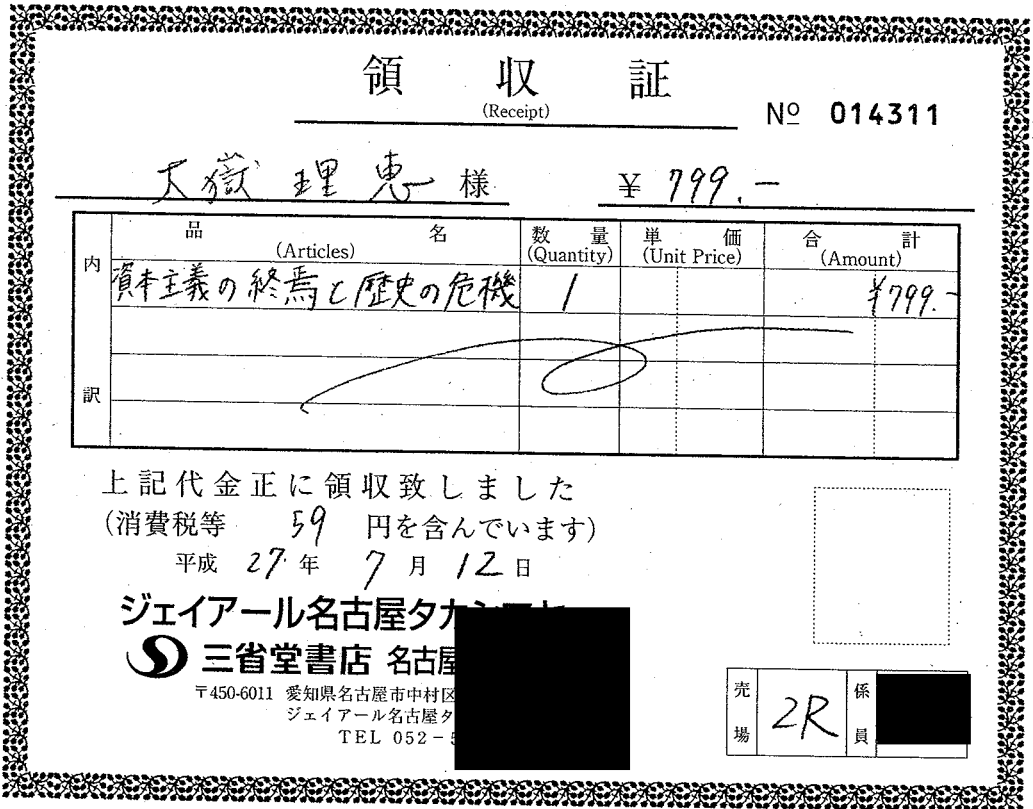 領収証
(Receipt)
№ 014311
大嶽理恵 様
¥ 799.-
内訳
品名 数量 単価 合計
(Articles) (Quantity) (Unit Price) (Amount)
資本主義の終焉と歴史の危機 1 ¥799.-
上記代金正に領収致しました
(消費税等 59 円を含んでいます)
平成 27年 7月 12日
ジェイアール名古屋タカシマヤ
三省堂書店 名古屋
〒450-6011 愛知県名古屋市中村区
ジェイアール名古屋タ
TEL 052-5
売場 2R 係員